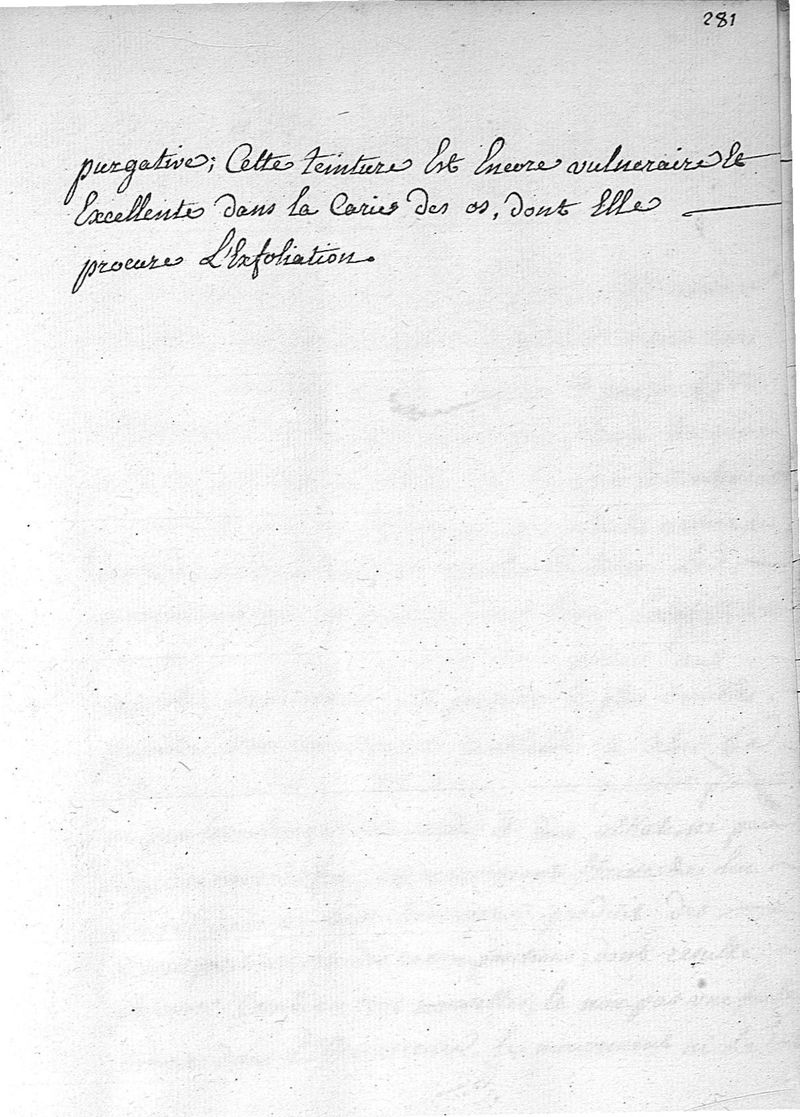 281
purgative; Cette teinture Est Encore vulneraire Et
Excellente dans la Carie des os, dont Elle
procure L'Exfoliation.